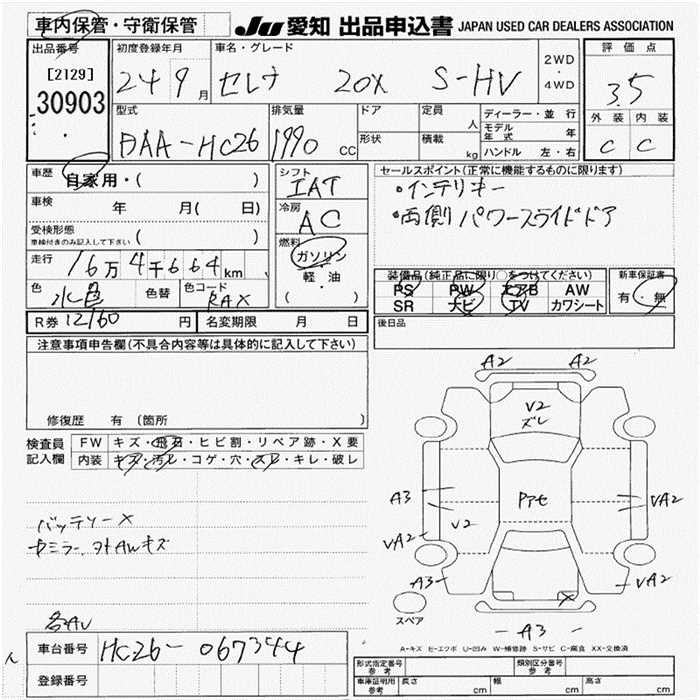 車内保管・守衛保管
JU 愛知 出品申込書 JAPAN USED CAR DEALERS ASSOCIATION
出品番号 初度登録年月 車名・グレード 2WD ・ 4WD 評価点
[2129] 30903
24 9月 セレナ 20X S-HV 3.5
型式 排気量 ドア 定員 人 ディーラー・並行 外装 内装
DAA-HC26 1990 CC 形状 積載 kg モデル年式 年 C C
ハンドル 左・右
車歴 自家用・( ) シフト IAT セールスポイント(正常に機能するものに限ります)
車検 年 月( 日) 冷房 AC ・インテリキー
受検形態 車検付きのみ記入して下さい ( ) ・両側パワースライドドア
走行 16万4千664km 燃料 ガソリン・軽油 ( )
装備品(純正品に限り○をつけてください) 新車保証書
PS PW エアB AW 有・無
SR ナビ TV カワシート
色 水色 色替 色コード RAX
後日品
R券 12160 円 名変期限 月 日
注意事項申告欄(不具合内容等は具体的に記入して下さい)
修復歴 有 (箇所 )
検査員記入欄 FW キズ・飛石・ヒビ割・リペア跡・X要
内装 キズ・汚レ・コゲ・穴・スレ・キレ・破レ
バッテリーX
ヨAWキズ
各AU
A2 A2
V2
ズレ
A3 Pアセ VA2
V2
VA2
A3 VA2
X
スペア
A3
A-キズ E-エクボ U-凹み W-補修跡 S-サビ C-腐食 XX-交換済
車台番号 HC26-067344
登録番号
形式指定番号 参考 類別区分番号 参考
車庫証明用 参考 長さ cm 幅 cm 高さ cm